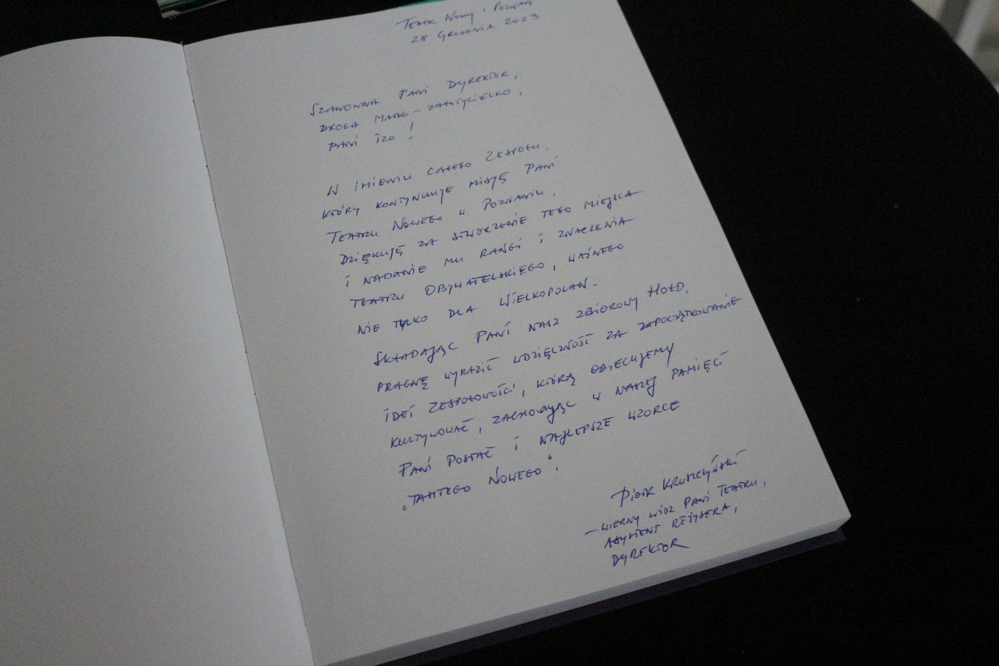 Teatr Nowy, Poznań
28 Grudnia 2023
Szanowna Pani Dyrektor,
Droga Matko-Założycielko,
Pani Izo!
W imieniu całego Zespołu,
który kontynuuje misję Pani
Teatru Nowego w Poznaniu,
Dziękuję za stworzenie tego miejsca
i nadanie mu rangi i znaczenia
Teatru Obywatelskiego, ważnego
nie tylko dla Wielkopolan.
Składając Pani nasz zbiorowy Hołd,
pragnę wyrazić wdzięczność za zapoczątkowanie
idei zespołowości, którą obiecujemy
kultywować, zachowując w naszej pamięci
Pani postać i najlepsze wzorce
„Tamtego Nowego".
Piotr Kruszczyński
– wierny widz Pani Teatru,
asystent reżysera,
Dyrektor